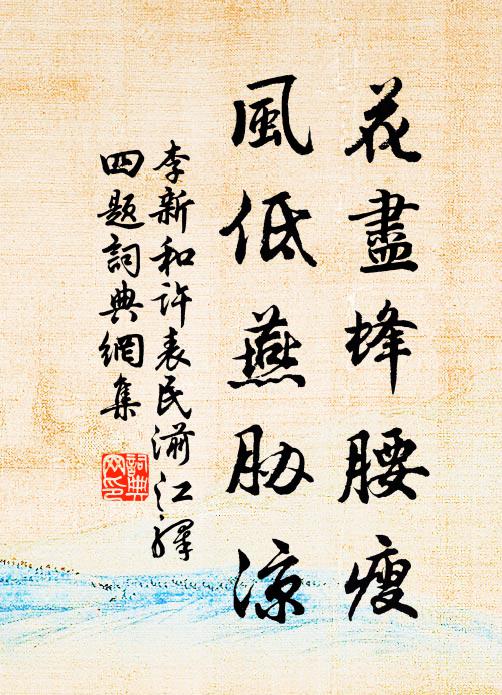 花盡蜂腰瘦
風低燕肋涼
李新和許表民湔江驛
四題詞典網集
詞典
网印